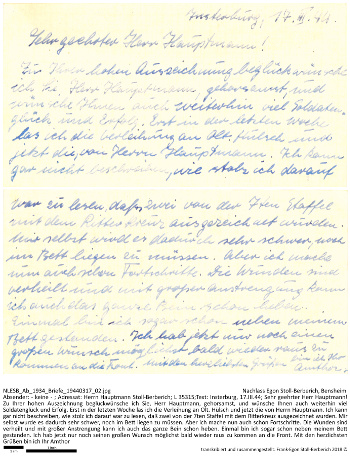 Insterburg, 17.III.44.
Sehr geehrter Herr Hauptmann!
Zu Ihrer hohen Auszeichnung beglückwünsche
ich Sie, Herr Hauptmann, gehorsamst, und
wünsche Ihnen auch weiterhin viel Soldaten-
glück und Erfolg. Erst in der letzten Woche
las ich die Verleihung an Olt. Fülsch und
jetzt die von Herrn Hauptmann. Ich kann
gar nicht beschreiben, wie stolz ich darauf
war zu lesen, dass zwei von der Staffel
mit dem Ritterkreuz ausgezeichnet wurden.
Mir selbst wird es dadurch sehr schwer, noch
im Bett liegen zu müssen. Aber ich mache
nun auch schon Fortschritte. Die Wunden sind
verheilt und mit großer Anstrengung kann
ich auch das ganze Bein schon heben.
Einmal bin ich sogar schon neben meinem
Bett gestanden. Ich hab jetzt nur noch einen
großen Wunsch möglichst bald wieder raus zu
kommen an die Front. Mit den herzlichsten Grüßen bin ich Ihr
Anthor.
NLESB_Ab_1934_Briefe_19440317_02.jpg Nachlass Egon Stoll-Berberich, Bensheim
Absender: - keine - ; Adressat: Herrn Hauptmann Stoll-Berberich; L 35315;Text: Insterburg, 17.III.44; Sehr geehrter Herr Hauptmann!
Zu Ihrer hohen Auszeichnung beglückwünsche ich Sie, Herr Hauptmann, gehorsamst, und wünsche Ihnen auch weiterhin viel
Soldatenglück und Erfolg. Erst in der letzten Woche las ich die Verleihung an Olt. Fülsch und jetzt die von Herrn Hauptmann. Ich kann
gar nicht beschreiben, wie stolz ich darauf war zu lesen, daß zwei von der Staffel mit dem Ritterkreuz ausgezeichnet wurden. Mir
selbst wurde es dadurch sehr schwer, noch im Bett liegen zu müssen. Aber ich mache nun auch schon Fortschritte. Die Wunden sind
verheilt und mit großer Anstrengung kann ich auch das ganze Bein schon heben. Einmal bin ich sogar schon neben meinem Bett
gestanden. Ich hab jetzt nur noch seinen großen Wunsch möglichst bald wieder raus zu kommen an die Front. Mit den herzlichsten
Grüßen bin ich Ihr Anthor.
transkribiert und zusammengestellt: Frank-Egon Stoll-Berberich 2018 ©